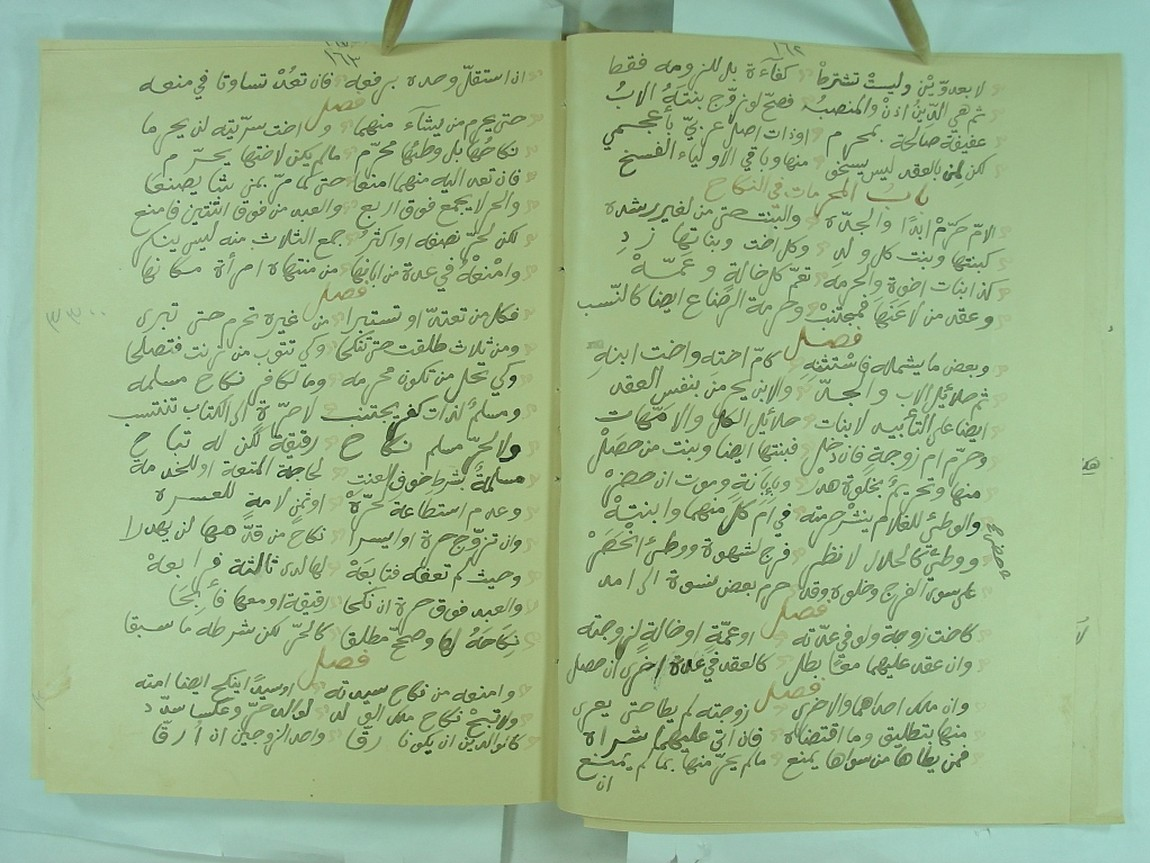 ١٦٢
لا بعد دين وليست تشترط كفاءة بل للزومه فقط
ثم هي الدين اذن والمنصب فصح لو زوج بنته الاب
عفيفة صالحة بمحرم اوذات اصل عربي باعجمي
لكن لمن بالعقد ليس منها وباقي الاولياء الفسخ
باب المحرمات في النكاح
الام حرم ابدا والجدة والبنت حتى من لغير رشدة
كبنتها وبنت كل ولد وكل اخت وبناتها زد
كذا بنات اخوة والحرمه تعم كل خالة وعمة
وعقد من لاعنها فمجتنب وحرمة الرضاع ايضا كالنسب
فصل
وبعض ما يشمله فاستثنه كام اخته واخت ابنه
ثم حلائل الاب والجد والابن يحرمن بنفس العقد
ايضا على التأبيد لابنات حلائل الكل والامهات
وحرم ام زوجة فان دخل فبنتها ايضا وبنت من حصل
منها وتحريم بخلوة هدر وبابانة وموت ان حضر
والوطئ للغلام ينشر حرمته في ام كل منهما وابنته
ووطئ كالحلال لا نظر فرج لشهوة ووطئ انحضر
على سوى الفرج وخلوة وقد حرم بعض نسوة الى امد
فصل
كاخت زوجة ولو في عدته او عمة او خالة لزوجته
وان عقد عليهما معا بطل كالعقد في عدة اخرى ان حصل
فصل
وان ملك احداهما والاخرى زوجته لم يطا حتى يعرى
منها بتطليق وما اقتضاه فان اتى عليهما شراه
فمن يطاها من سواها يمنع ما لم يحرمنها بما لم يمنع
ان
١٦٣
ان استقل وحده برفعه فان تعد تساوتا في منعه
فصل
حتى يحرم من يشاء منهما واخت سريته لن يحرما
نكاحها بل وطئها محرم مالم يكن لاختها يحرم
فان تعد اليه منهما امنعا حتى كما مر بمن شا يصنعا
والحر لا يجمع فوق اربع والعبد من فوق اثنتين فامنع
لكن لحر نصفه او اكثر جمع الثلاث منه ليس ينكر
وامنعه في عدة من ابانها من منتهاة امرأة مكانها
فصل
فكل من تعتد او تستبرا من غيره تحرم حتى تبرى
ومن ثلاث طلقت حتى تنكحا وكي تتوب من زنت فتصلحا
وكي تحل من تكون محرمه وما لكافر نكاح مسلمه
ومسلم لذات كفر يجتنب لا حرة الى الكتاب تنتسب
ولا لحر مسلم نكاح رقيقة لكن له تباح
مسلمة بشرط خوف العنت لحاجة المتعة او للخدمة
وعدم استطاعة لحرة او ثمن لامة للعسرة
وان تزوج حرة او ايسرا نكاح من قدمها لن يهدرا
وحيث لم تعفه فتابعه لها لدى ثالثة فرابعة
والعبد فوق حرة ان نكحا رقيقة او معها فأبحا
نكاحه لها وصحح مطلقا كالحر لكن شرطه ما سبقا
فصل
وامنعه من نكاح سيدته او سيدا اينكح ايضا امته
ولا تبح نكاح ملك الولد لوالد حر وعكسا سدد
كالوالدين ان يكونا رقا واحد الزوجين ان ارقا